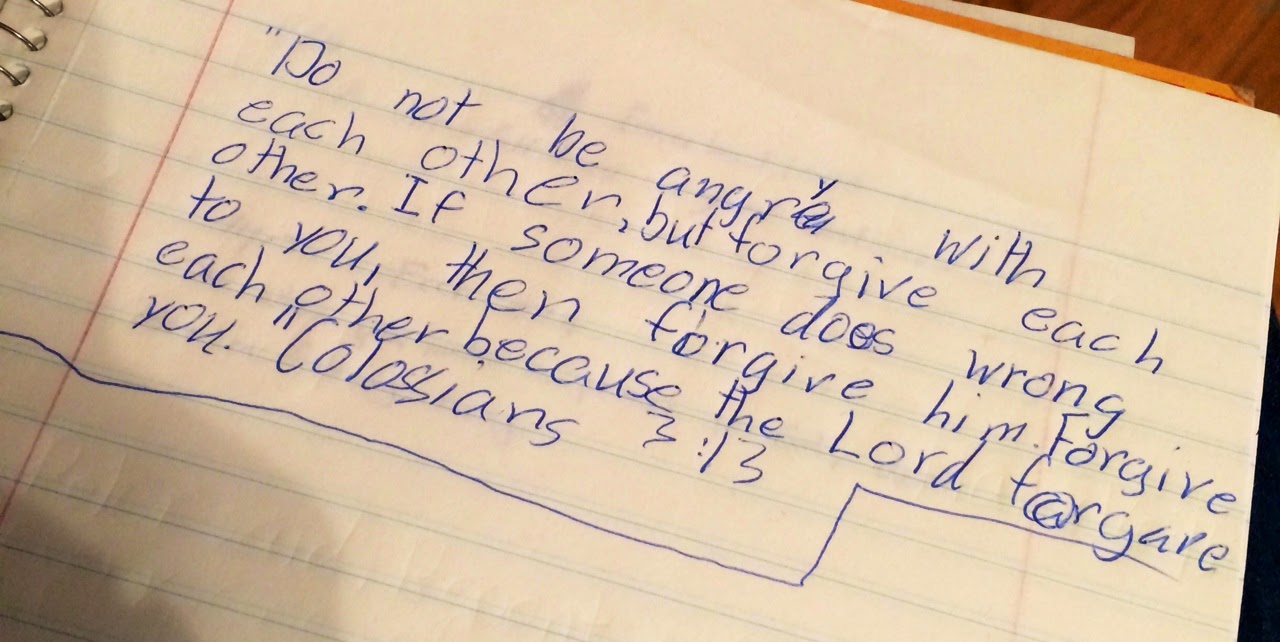 "Do not be angry with
each other, but forgive each
other. If someone does wrong
to you, then forgive him. Forgive
each other because the Lord forgave
you." Colossians 3:13